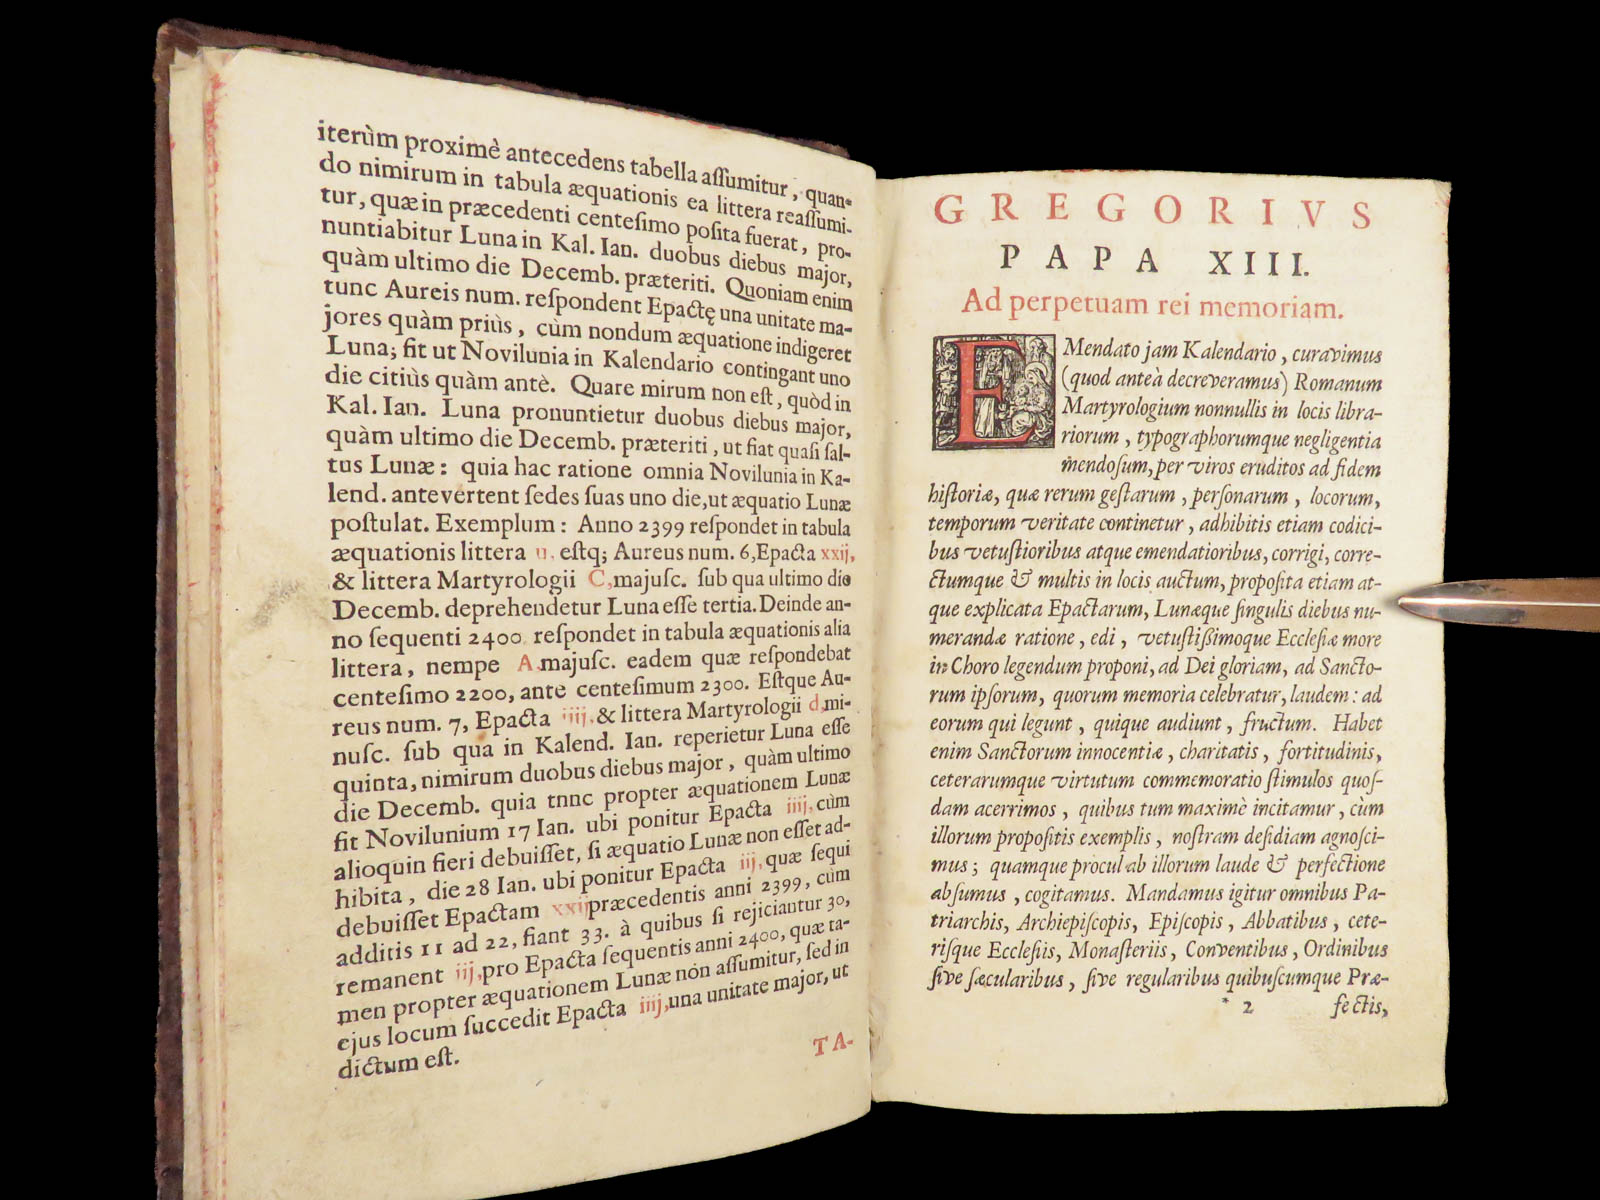 iterùm proximè antecedens tabella aſſumitur, quan-
do nimirum in tabula æquationis ea littera reaſſumi-
tur, quæ in præcedenti centeſimo poſita fuerat, pro-
nuntiabitur Luna in Kal. Ian. duobus diebus major,
quàm ultimo die Decemb. præteriti. Quoniam enim
tunc Aureis num. reſpondent Epactę una unitate ma-
jores quàm priùs, cùm nondum æquatione indigeret
Luna; fit ut Novilunia in Kalendario contingant uno
die citiùs quàm antè. Quare mirum non eſt, quòd in
Kal. Ian. Luna pronuntietur duobus diebus major,
quàm ultimo die Decemb. præteriti, ut fiat quaſi ſal-
tus Lunæ: quia hac ratione omnia Novilunia in Ka-
lend. antevertent ſedes ſuas uno die, ut æquatio Lunæ
poſtulat. Exemplum: Anno 2399 reſpondet in tabula
æquationis littera u. eſtq; Aureus num. 6, Epacta xxij,
& littera Martyrologii C, majuſc. ſub qua ultimo die
Decemb. deprehendetur Luna eſſe tertia. Deinde an-
no ſequenti 2400 reſpondet in tabula æquationis alia
littera, nempe A majuſc. eadem quæ reſpondebat
centeſimo 2200, ante centeſimum 2300. Eſtque Au-
reus num. 7, Epacta iiij, & littera Martyrologii d, mi-
nuſc. ſub qua in Kalend. Ian. reperietur Luna eſſe
quinta, nimirum duobus diebus major, quàm ultimo
die Decemb. quia tnnc propter æquationem Lunæ
fit Novilunium 17 Ian. ubi ponitur Epacta iiij, cùm
alioquin fieri debuiſſet, ſi æquatio Lunæ non eſſet ad-
hibita, die 28 Ian. ubi ponitur Epacta iij, quæ ſequi
debuiſſet Epactam xxij præcedentis anni 2399, cùm
additis 11 ad 22, fiant 33. à quibus ſi rejiciantur 30,
remanent iij, pro Epacta ſequentis anni 2400, quæ ta-
men propter æquationem Lunæ non aſſumitur, ſed in
ejus locum ſuccedit Epacta iiij, una unitate major, ut
dictum eſt.
TA-
GREGORIVS
PAPA XIII.
Ad perpetuam rei memoriam.
EMendato jam Kalendario, curavimus
(quod anteà decreveramus) Romanum
Martyrologium nonnullis in locis libra-
riorum, typographorumque negligentia
mendoſum, per viros eruditos ad fidem
hiſtoriæ, quæ rerum geſtarum, perſonarum, locorum,
temporum veritate continetur, adhibitis etiam codici-
bus vetuſtioribus atque emendatioribus, corrigi, corre-
ctumque & multis in locis auctum, propoſita etiam at-
que explicata Epactarum, Lunæque ſingulis diebus nu-
merandæ ratione, edi, vetuſtiſſimoque Eccleſiæ more
in Choro legendum proponi, ad Dei gloriam, ad Sancto-
rum ipſorum, quorum memoria celebratur, laudem: ad
eorum qui legunt, quique audiunt, fructum. Habet
enim Sanctorum innocentiæ, charitatis, fortitudinis,
ceterarumque virtutum commemoratio ſtimulos quoſ-
dam acerrimos, quibus tum maximè incitamur, cùm
illorum propoſitis exemplis, noſtram deſidiam agnoſci-
mus; quamque procul ab illorum laude & perfectione
abſumus, cogitamus. Mandamus igitur omnibus Pa-
triarchis, Archiepiſcopis, Epiſcopis, Abbatibus, cete-
riſque Eccleſiis, Monaſteriis, Conventibus, Ordinibus
ſive ſæcularibus, ſive regularibus quibuſcumque Præ-
* 2 fectis,